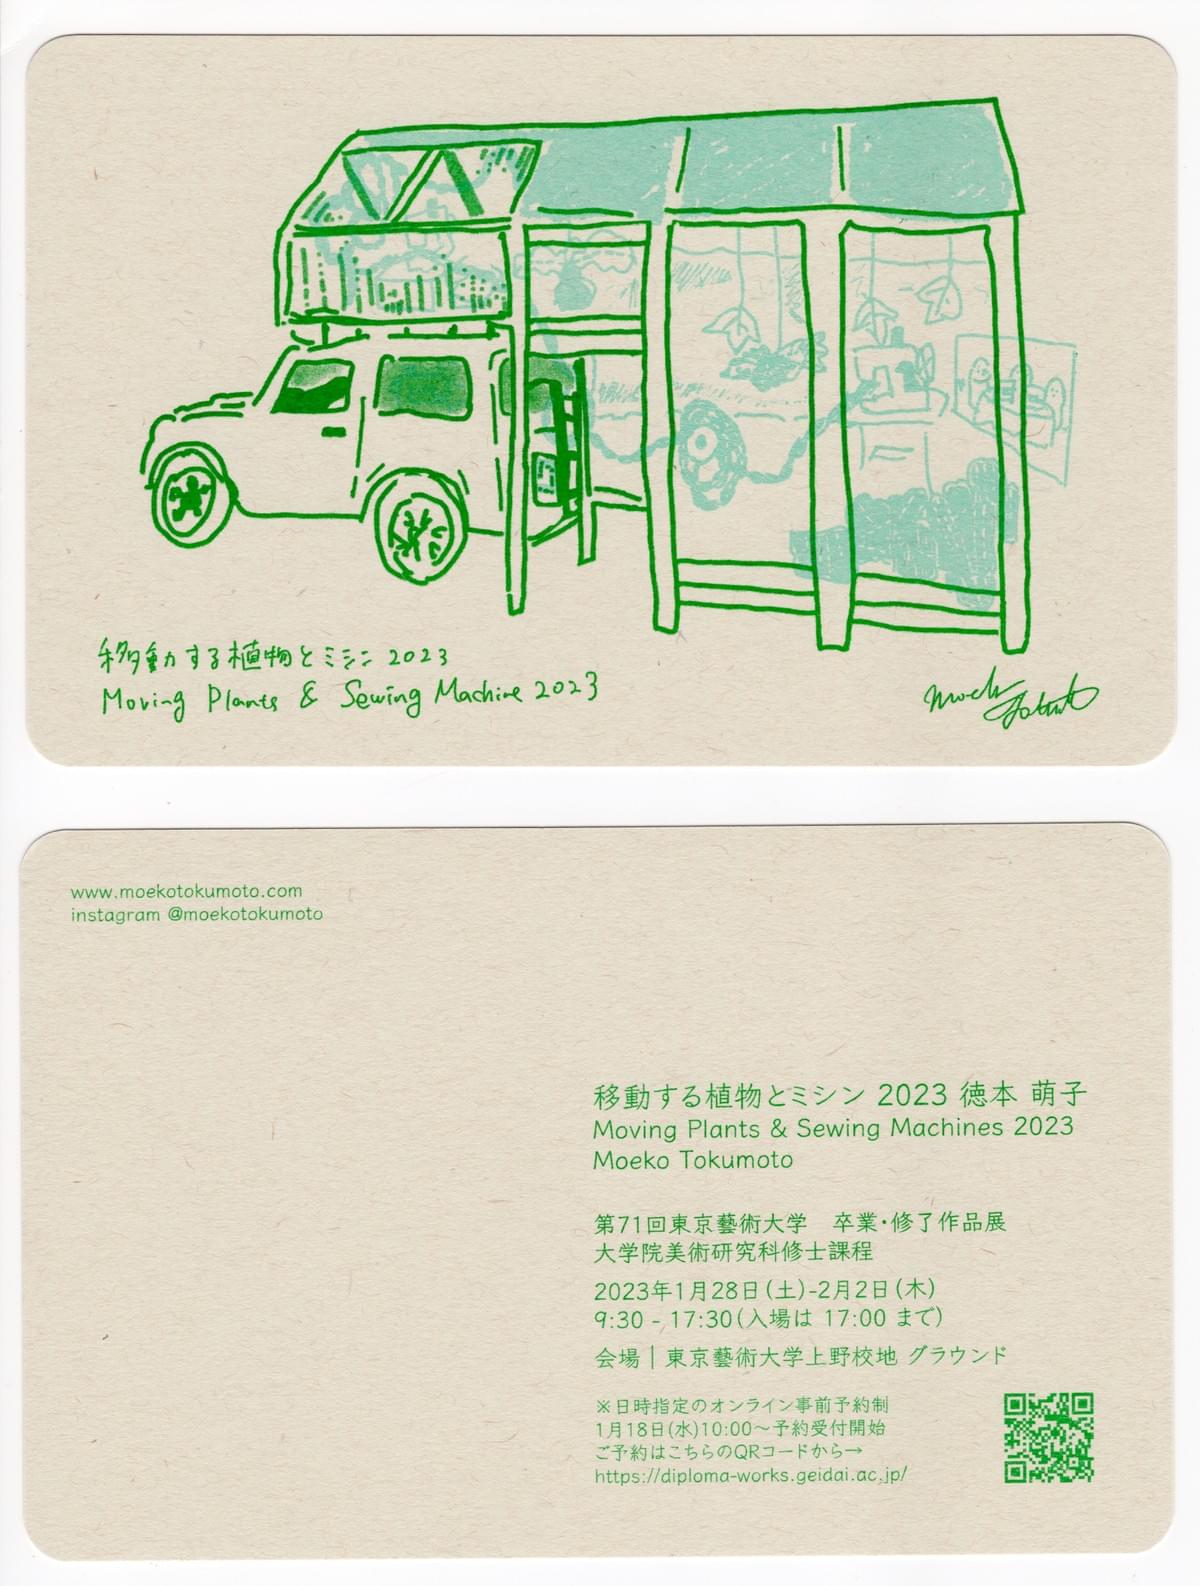 移動する植物とミシン 2023
Moving Plants & Sewing Machine 2023
www.moekotokumoto.com
instagram @moekotokumoto
移動する植物とミシン 2023 徳本 萌子
Moving Plants & Sewing Machines 2023
Moeko Tokumoto
第71回東京藝術大学　卒業・修了作品展
大学院美術研究科修士課程
2023年1月28日(土)-2月2日(木)
9:30 - 17:30(入場は 17:00 まで)
会場｜東京藝術大学上野校地 グラウンド
※日時指定のオンライン事前予約制
1月18日(水)10:00〜予約受付開始
ご予約はこちらのQRコードから→
https://diploma-works.geidai.ac.jp/